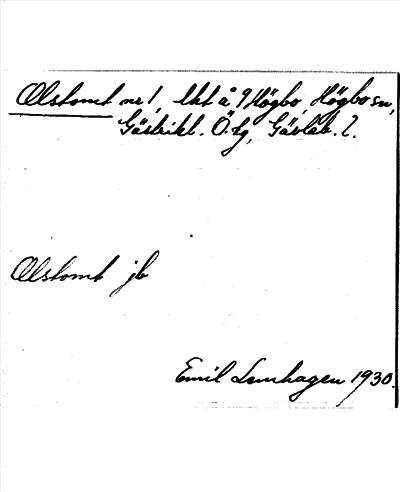 Ölstomt nr 1, lht å 9 Högbo, Högbo sn,
Gästrikl. Ö. tg, Gävleb. l.
Ölstomt jb
Emil Lemhagen 1930.